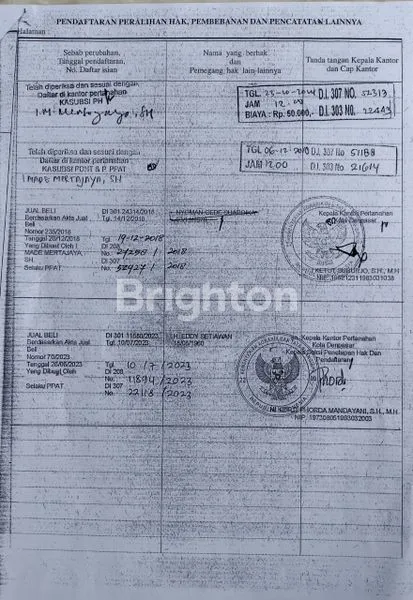 PENDAFTARAN PERALIHAN HAK, PEMBEBANAN DAN PENCATATAN LAINNYA
Halaman
Sebab perubahan,
Tanggal pendaftaran,
No. Daftar isian
Nama yang berhak
dan
Pemegang hak lain-lainnya
Tanda tangan Kepala Kantor
dan Cap Kantor
Telah diperiksa dan sesuai dengan
Daftar di kantor pertanahan
KASUBSI PH
TGL 23-10-2014 D.I. 307 NO. 52313
JAM 12.00
BIAYA : Rp. 50.000,- D.I. 303 NO. 22443
Telah diperiksa dan sesuai dengan
Daftar di kantor pertanahan
KASUBSI PDNT & P. PPAT
I MADE MERTAJAYA, SH
TGL 06-12-2018 D.I. 307 No 51188
JAM 12.00 D.I. 303 No 21614
JUAL BELI
Berdasarkan Akta Jual
Beli
Nomor 235/2018
Tanggal 20/12/2018
Yang Dibuat Oleh I
MADE MERTAJAYA,
SH.
Selaku PPAT
DI 301 24314/2018
Tgl. 14/12/2018
Tgl. 19-12-2018
DI 208
No. / 2018
DI 307
No. 52927 / 2018
I NYOMAN GEDE SUARDIKA
Kepala Kantor Pertanahan
I KETUT SUBURJO, S.H., M.H
NIP. 196212311983031038
Brighton
JUAL BELI
Berdasarkan Akta Jual
Beli
Nomor 70/2023
Tanggal 26/06/2023
Yang Dibuat Oleh
Selaku PPAT
DI 301 11680/2023
Tgl. 10/07/2023
Tgl. 10 / 7 / 2023
DI 208
No. 11894 / 2023
DI 307
No. 22118 / 2023
EDDY SETIAWAN
15/05/1960
a.n. Kepala Kantor Pertanahan
Kota Denpasar
Kepala Seksi Penetapan Hak Dan
Pendaftaran
NI KETUT PHORDA MANDAYANI, S.H., M.H
NIP. 197306051993032003